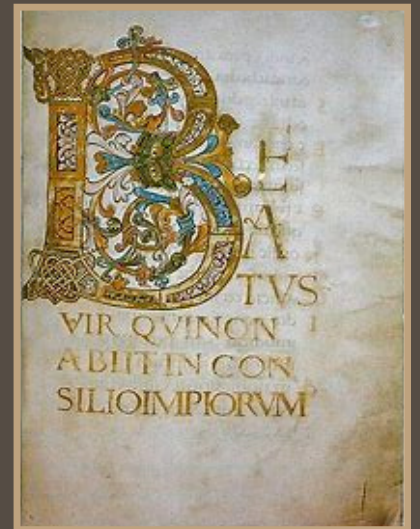 BE
A
TVS
VIR QVINON
ABIIT IN CON
SILIO IMPIORVM